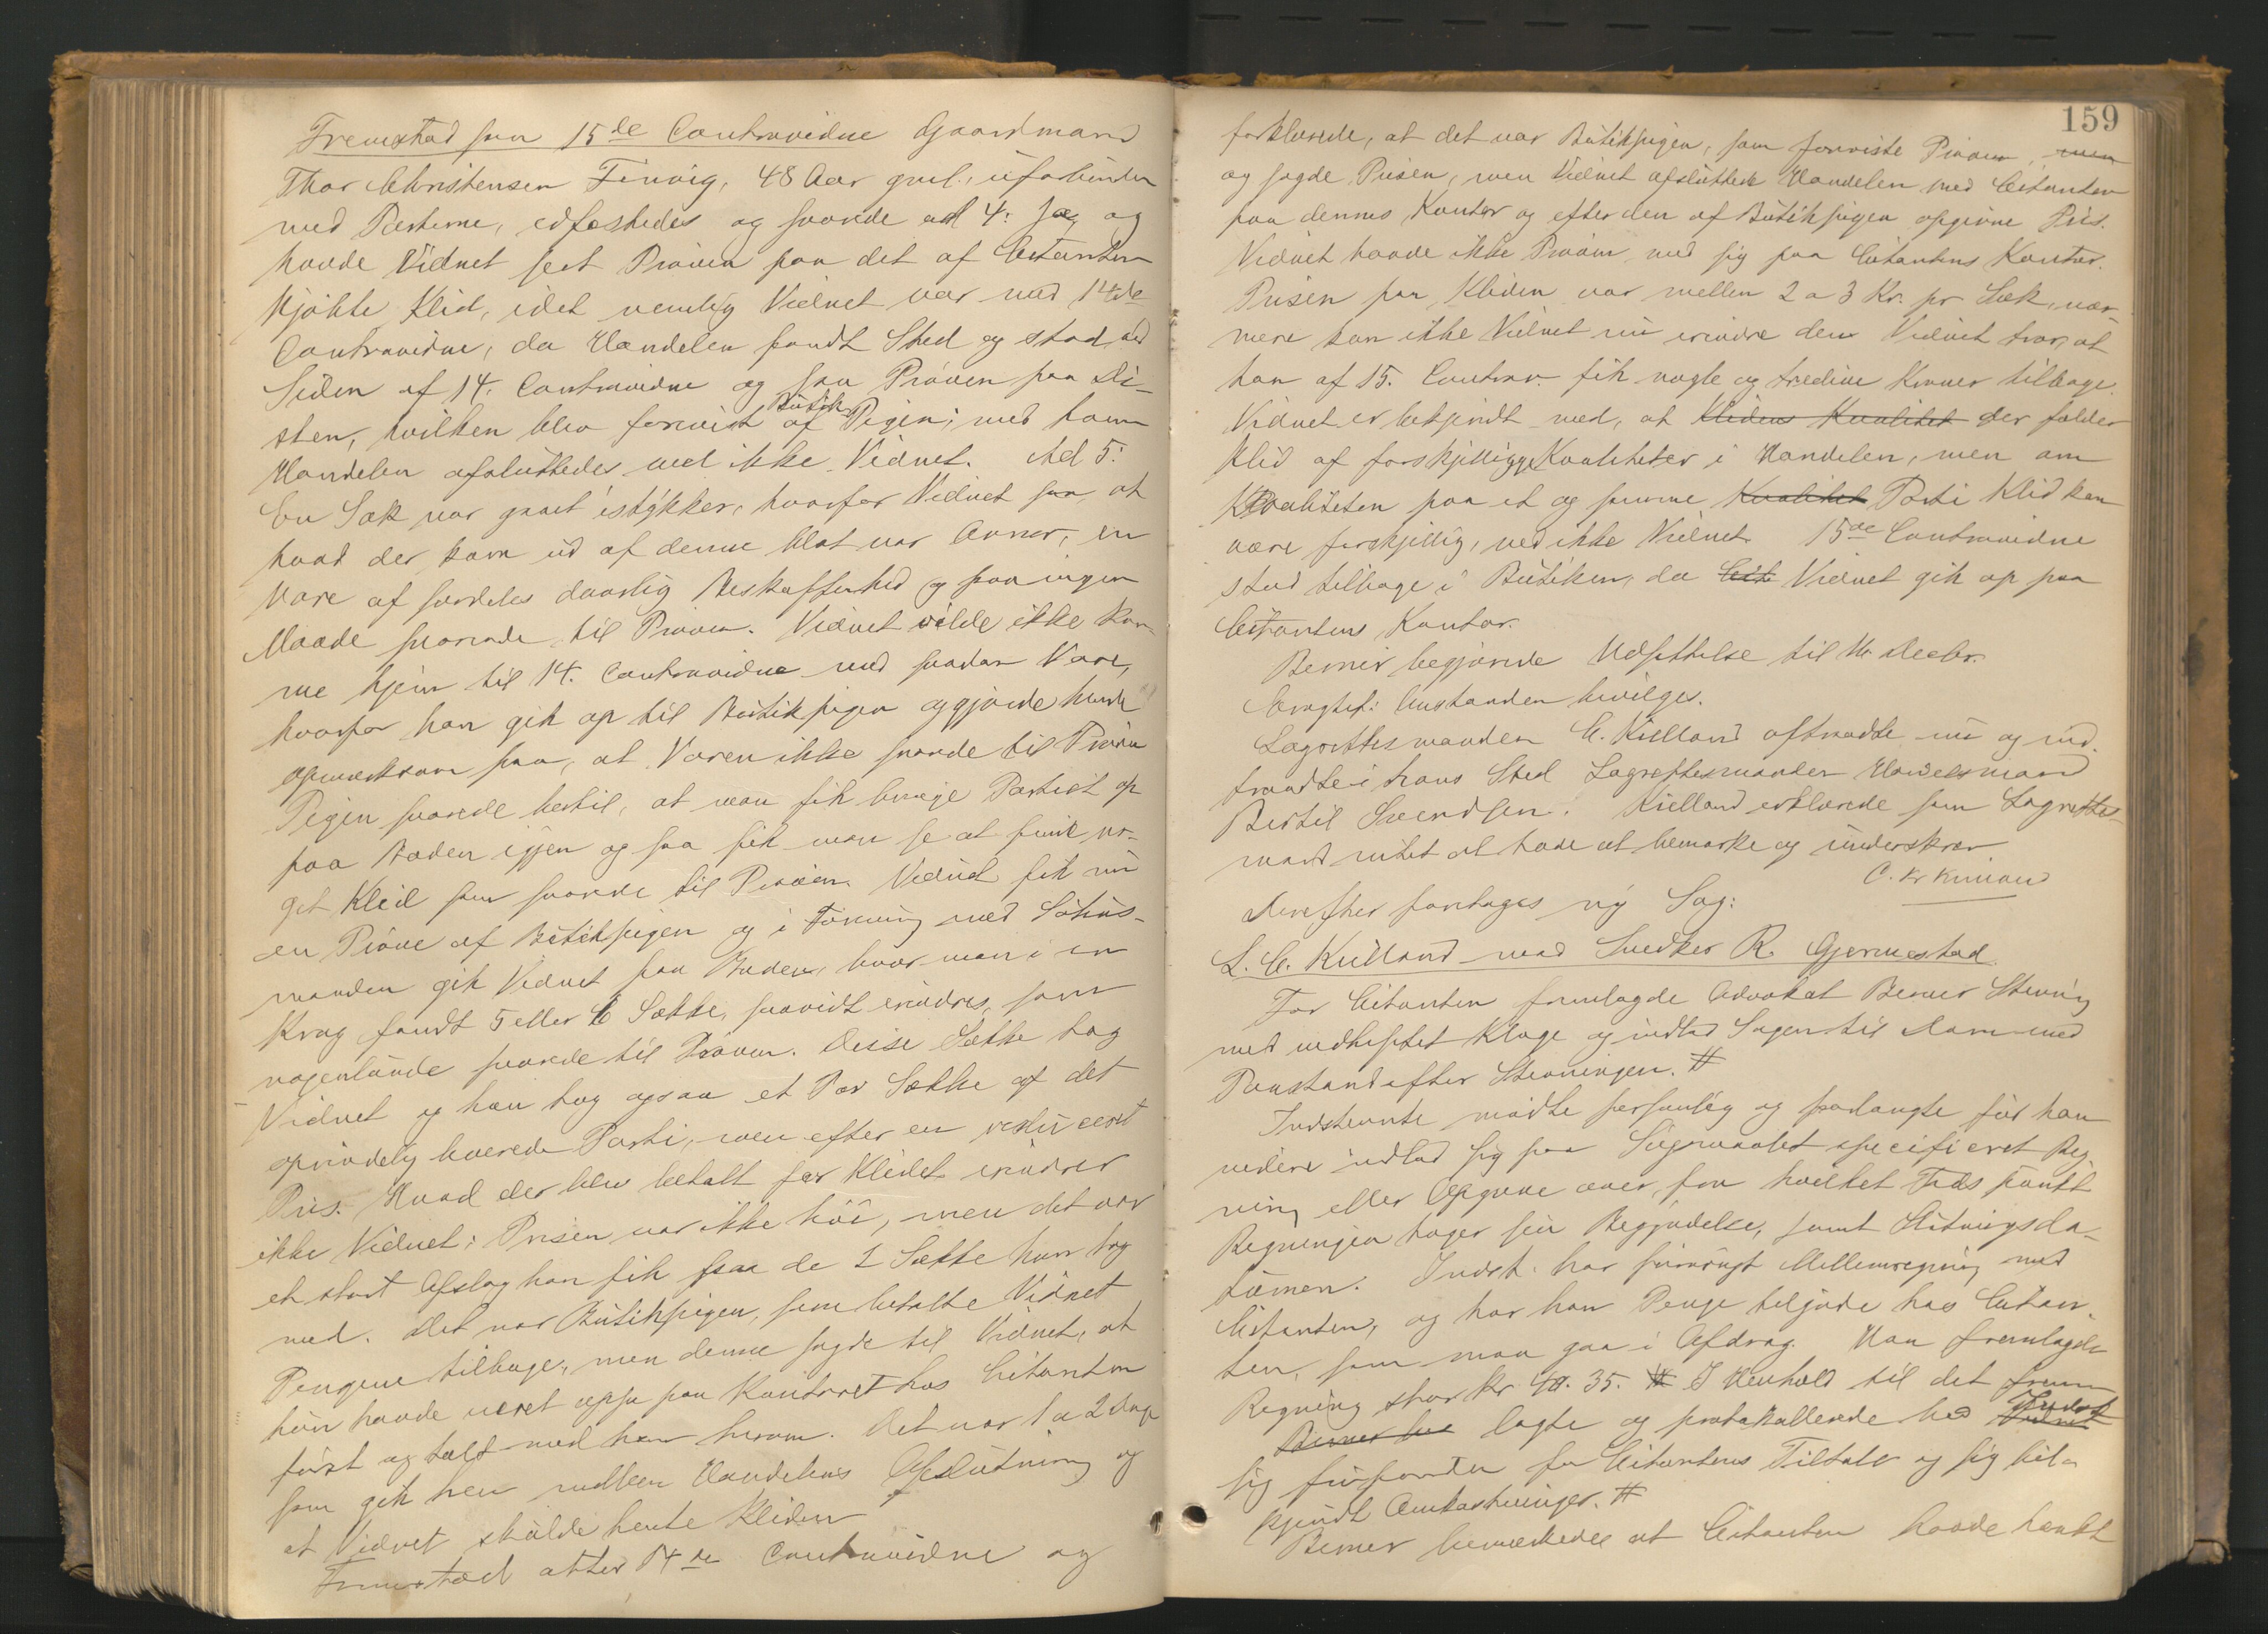 Fremstod som 15de Contravidne Gaardmand
Thor Christensen Finvig, 48 Aar gml., uforbunden
med Parterne, edfæstedes og svarede ad 4: Ja, og
havde Vidnet seet Prøven paa det af Citanten
kjøbte Klid, idet nemlig Vidnet var med 14de
Contravidne, da Handelen fandt Sted og stod ved
Siden af 14. Contravidne og saa Prøven paa Di-
sken, hvilken blev forevist af Butik Pigen; med hvem
Handelen afsluttedes ved ikke Vidnet. Ad 5:
En Sæk var gaaet istykker, hvorfor Vidnet saa, at
hvad der kom ud af denne blot var Avner, en
Vare af særdeles daarlig Beskaffenhed og paa ingen
Maade svarende til Prøven. Vidnet vilde ikke kom-
me hjem til 14. Contravidne med saadan Vare,
hvorfor han gik op til Butikpigen og gjorde hende
opmærksom paa, at Varen ikke svarede til Prøven
Pigen svarede hertil, at man fik bringe Partiet op
paa Boden igjen og saa fik man se at finde no-
get Klid som svarede til Prøven. Vidnet fik nu
en Prøve af Butikpigen og i Forening med Søhus-
manden gik Vidnet paa Boden, hvor man i en
Krog fandt 5 eller 6 Sække, saavidt erindres, som
nogenlunde svarede til Prøven. Disse Sække tog
Vidnet og han tog ogsaa et Par Sække af det
oprindelig leverede Parti, men efter en reduceret
Pris. Hvad der blev betalt for Klidet erindrer
ikke Vidnet; Prisen var ikke høi, men det var
et stort Afslag han fik paa de 2 Sække han tog
med. Det var Butikpigen, som betalte Vidnet
Pengene tilbage, men denne sagde til Vidnet, at
hun havde været oppe paa Kontoret hos Citanten
først og talt med ham herom. Det var 1 a 2 Dage
som gik hen mellem Handelens Afslutning og
at Vidnet skulde hente Kliden
Fremstod atter 14de Contravidne og
159
forklarede, at det var Butikpigen, som foreviste Prøven, men
og sagde Prisen, men Vidnet afsluttede Handelen med Citanten
paa dennes Kontor og efter den af Butikpigen opgivne Pris.
Vidnet havde ikke Prøven med sig paa Citantens Kontor.
Prisen paa Kliden var mellem 2 a 3 Kr. pr Sæk, nær-
mere kan ikke Vidnet nu erindre den Vidnet tror, at
han af 15. Contrav. fik nogle og tredive Kroner tilbage.
Vidnet er bekjendt med, at Klidens Kvalitet der falder
Klid af forskjellige Kvaliteter i Handelen, men om
Kvaliteten paa et og samme Kvalitet Parti Klid kan
være forskjellig, ved ikke Vidnet 15de Contravidne
stod tilbage i Butiken, da Cit. Vidnet gik op paa
Citantens Kontor.
Berner begjærede Udsættelse til Decbr.
Eragtet: Anstanden bevilges.
Lagrettesmanden C. Kielland aftraadte nu og ind-
traadte i hans Sted Lagrettesmanden Handelsmand
Bertil Svendsen. Kielland erklærede som Lagrettes-
mand intet at have at bemærke og underskrev.
Derefter foretages ny Sag:
L. C. Kielland mod Snedker R. Gjermestad
For Citanten fremlagde Advokat Berner Stevning
med vedheftet Klage og indlod Sagen til Dom med
Paastand efter Stevningen. #
Indstevnte mødte personlig og forlangte før han
videre indlod sig paa Søgsmaalet specificeret Reg-
ning eller Opgave over, fra hvilket Tidspunkt
Regningen tager sin Begyndelse, samt Slutningsda-
tumen. Indst. har forøvrigt Mellemregning med
Citanten, og har han Penge tilgode hos Citan-
ten, som maa gaa i Afdrag. Han fremlagde
Regning stor Kr 40. 35. # I Henhold til det frem
Berner lagte og protokollerede bad Vidnet Indst
sig frifunden for Citantens Tiltale og sig til-
kjendt Omkostninger. #
Berner bemærkede at Citanten havde tænkt